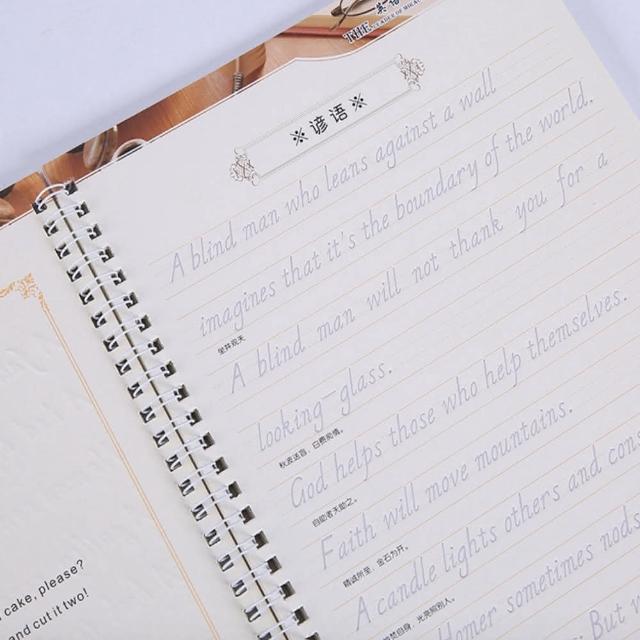 cake, please?
and cut it two!
英语
THE
※谚语※
A blind man who leans against a wall
imagines that it's the boundary of the world.
坐井观天
A blind man will not thank you for a
looking-glass.
秋波送盲，白费痴情。
God helps those who help themselves.
自助者天助之。
Faith will move mountains.
精诚所至，金石为开。
A candle lights others and
自身，光亮照别人。
Homer sometimes nods
But